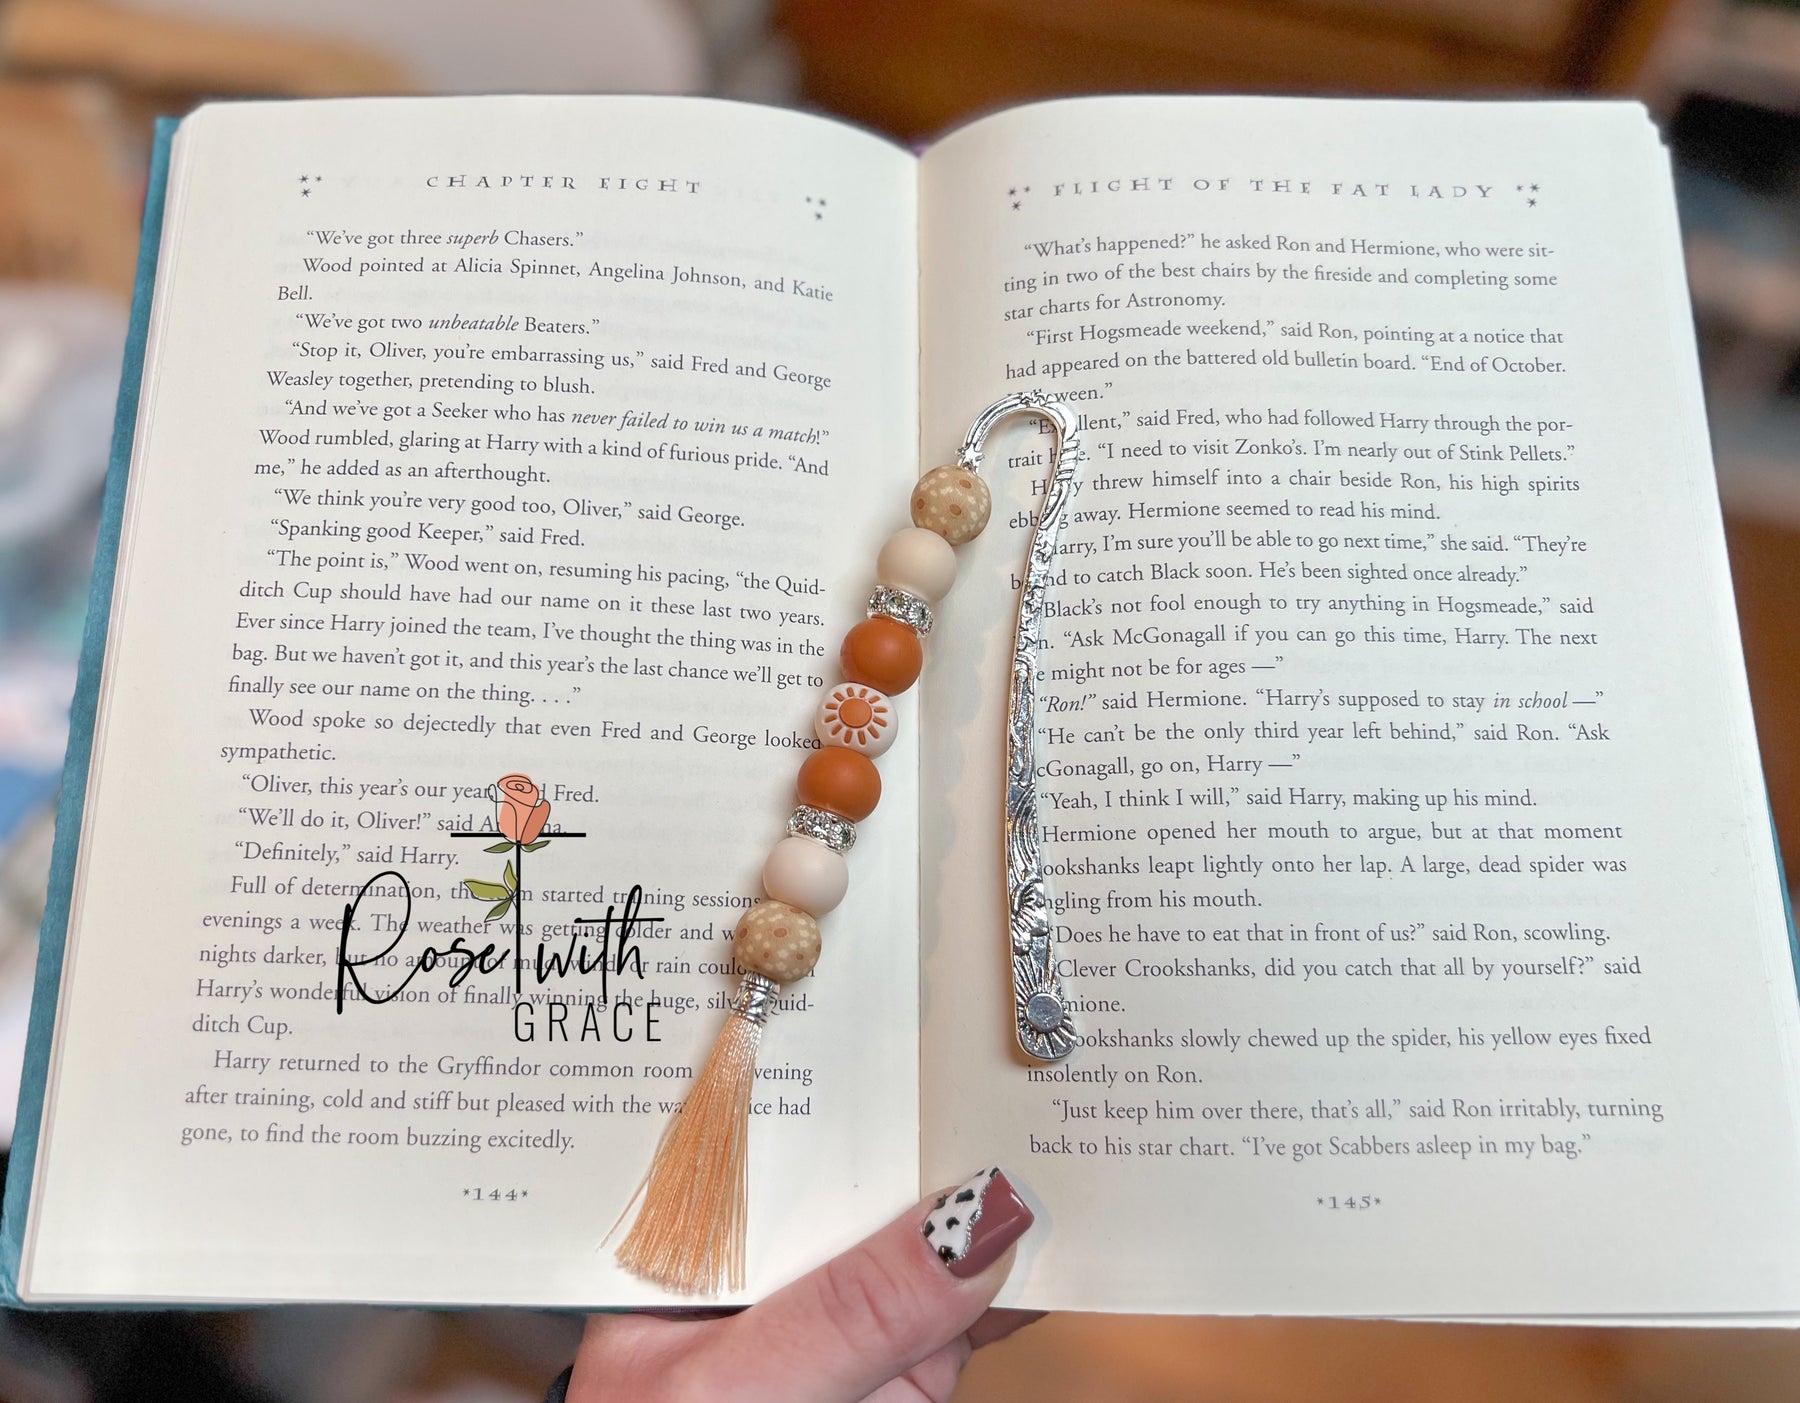 CHAPTER EIGHT
“We’ve got three superb Chasers.”
Wood pointed at Alicia Spinnet, Angelina Johnson, and Katie
Bell.
“We’ve got two unbeatable Beaters.”
“Stop it, Oliver, you’re embarrassing us,” said Fred and George
Weasley together, pretending to blush.
“And we’ve got a Seeker who has never failed to win us a match!”
Wood rumbled, glaring at Harry with a kind of furious pride. “And
me,” he added as an afterthought.
“We think you’re very good too, Oliver,” said George.
“Spanking good Keeper,” said Fred.
“The point is,” Wood went on, resuming his pacing, “the Quid-
ditch Cup should have had our name on it these last two years.
Ever since Harry joined the team, I’ve thought the thing was in the
bag. But we haven’t got it, and this year’s the last chance we’ll get to
finally see our name on the thing. . . .”
Wood spoke so dejectedly that even Fred and George looked
sympathetic.
“Oliver, this year’s our year Fred.
“We’ll do it, Oliver!” said
“Definitely,” said Harry.
Full of determination, started training sessions
evenings a week. The weather was getting colder and
nights darker, but no amount of mud, wind, or rain could
Harry’s wonderful vision of finally winning the huge, Quid-
ditch Cup.
Harry returned to the Gryffindor common room
after training, cold and stiff but pleased with the had
gone, to find the room buzzing excitedly.
*144*
Rose with
GRACE
FLIGHT OF THE FAT LADY
“What’s happened?” he asked Ron and Hermione, who were sit-
ting in two of the best chairs by the fireside and completing some
star charts for Astronomy.
“First Hogsmeade weekend,” said Ron, pointing at a notice that
had appeared on the battered old bulletin board. “End of October.
said Fred, who had followed Harry through the por-
trait “I need to visit Zonko’s. I’m nearly out of Stink Pellets.”
Harry threw himself into a chair beside Ron, his high spirits
away. Hermione seemed to read his mind.
“Harry, I’m sure you’ll be able to go next time,” she said. “They’re
to catch Black soon. He’s been sighted once already.”
“Black’s not fool enough to try anything in Hogsmeade,” said
“Ask McGonagall if you can go this time, Harry. The next
might not be for ages —”
“Ron!” said Hermione. “Harry’s supposed to stay in school —”
“He can’t be the only third year left behind,” said Ron. “Ask
McGonagall, go on, Harry —”
“Yeah, I think I will,” said Harry, making up his mind.
Hermione opened her mouth to argue, but at that moment
Crookshanks leapt lightly onto her lap. A large, dead spider was
from his mouth.
“Does he have to eat that in front of us?” said Ron, scowling.
“Clever Crookshanks, did you catch that all by yourself?” said
Crookshanks slowly chewed up the spider, his yellow eyes fixed
insolently on Ron.
“Just keep him over there, that’s all,” said Ron irritably, turning
back to his star chart. “I’ve got Scabbers asleep in my bag.”
*145*